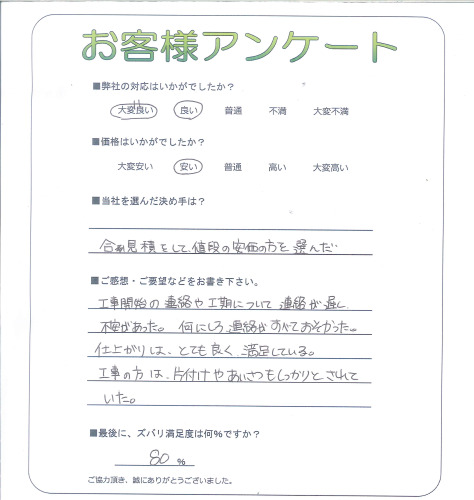 お客様アンケート
■弊社の対応はいかがでしたか？
大変良い 良い 普通 不満 大変不満
■価格はいかがでしたか？
大変安い 安い 普通 高い 大変高い
■当社を選んだ決め手は？
合見積をして、値段の安価の方を選んだ
■ご感想・ご要望などをお書き下さい。
工事開始の連絡や工期について連絡が遅し
不安があった。何にしろ連絡がすべておそかった。
仕上がりは、とても良く、満足している。
工事の方は、片付けやあいさつもしっかりとされて
いた。
■最後に、ズバリ満足度は何%ですか？
80 %
ご協力頂き、誠にありがとうございました。